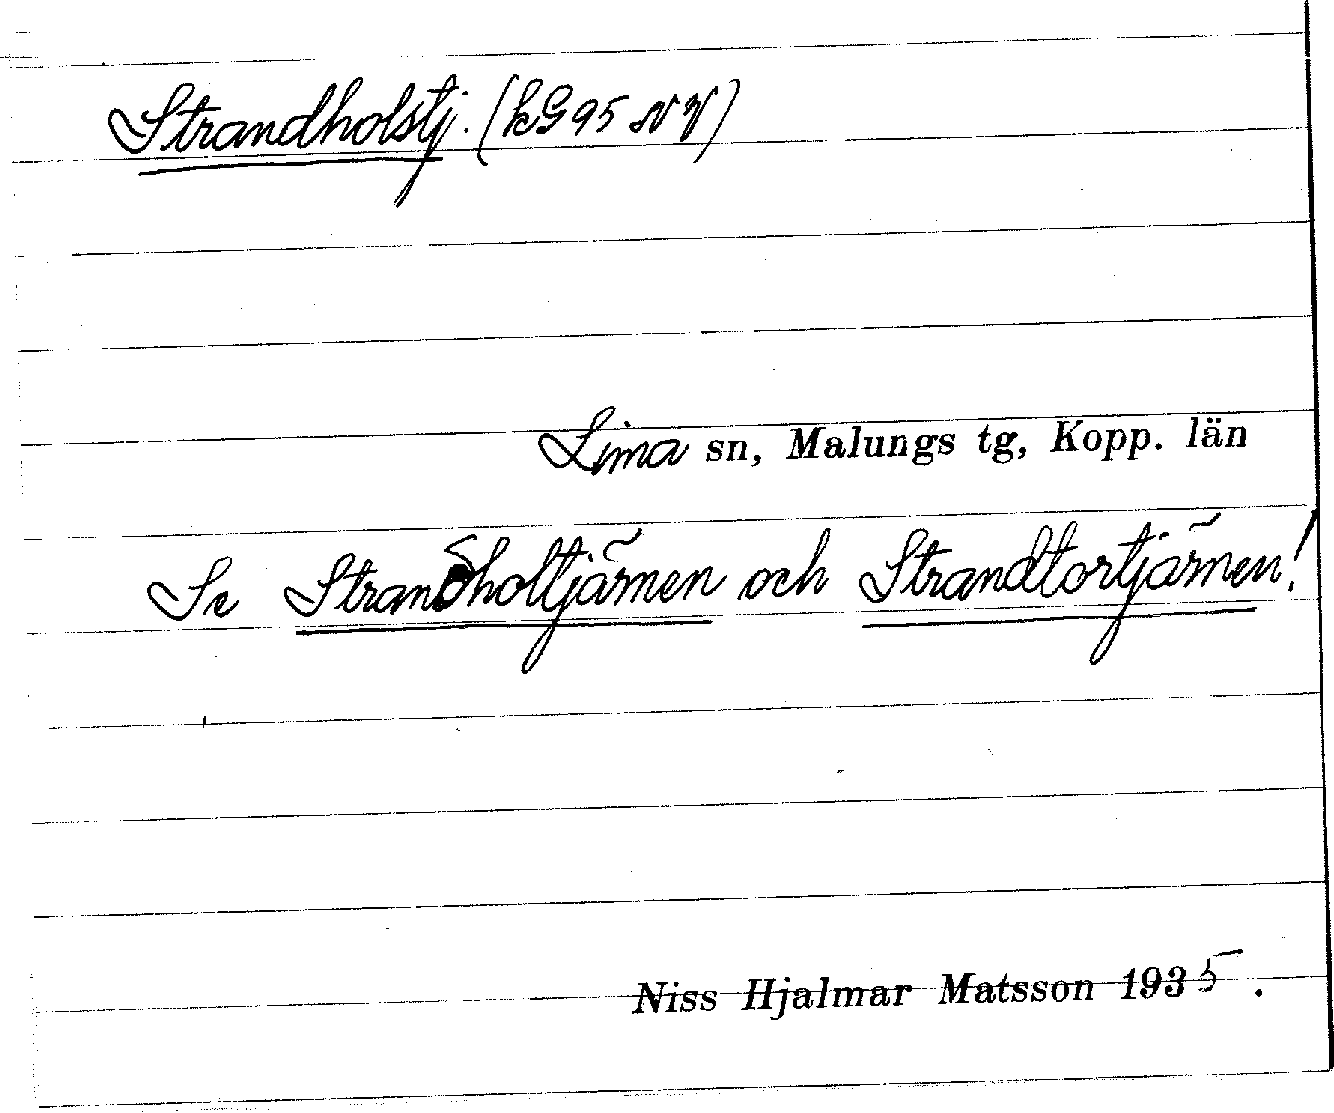 Strandholstj. (kG 95 NV)
Lima sn, Malungs tg, Kopp. län
Se Strandholtjärnen och Strandtortjärnen!
Niss Hjalmar Matsson 1935.